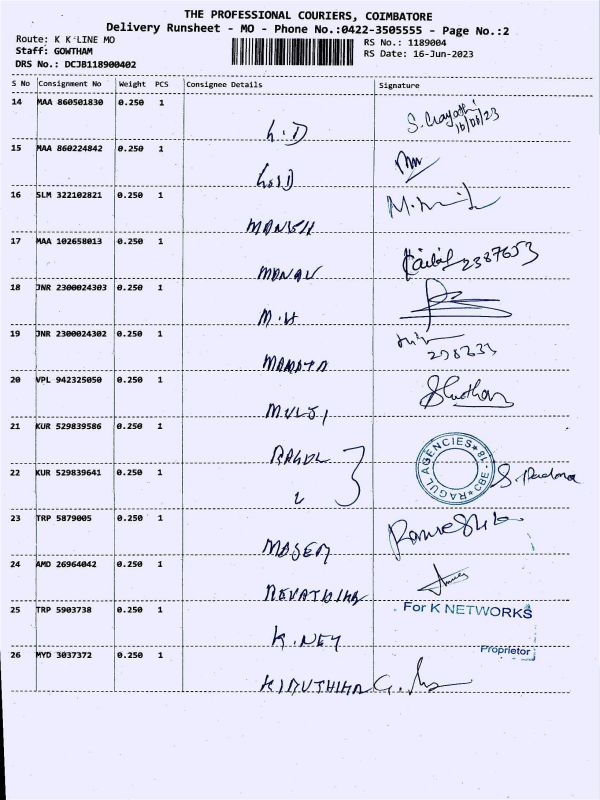 THE PROFESSIONAL COURIERS, COIMBATORE
Delivery Runsheet - MO - Phone No.:0422-3505555 - Page No.:2
Route: K K LINE MO
RS No.: 1189004
Staff: GOWTHAM
RS Date: 16-Jun-2023
DRS No.: DCJB118900402
S No Consignment No Weight PCS Consignee Details Signature
14 MAA 860501830 0.250 1
L.D
16/06/23
15 MAA 860224842 0.250 1
16 SLM 322102821 0.250 1
17 MAA 102658013 0.250 1
2387653
18 JNR 2300024303 0.250 1
M.H
19 JNR 2300024302 0.250 1
20 VPL 942325050 0.250 1
21 KUR 529839586 0.250 1
RAGUL AGENCIES * CBE - 18 *
22 KUR 529839641 0.250 1
S. Padma
23 TRP 5879005 0.250 1
24 AMD 26964042 0.250 1
REVATHIKA
25 TRP 5903738 0.250 1
For K NETWORKS
K.NET
Proprietor
26 MYD 3037372 0.250 1
KIRUTHIKA